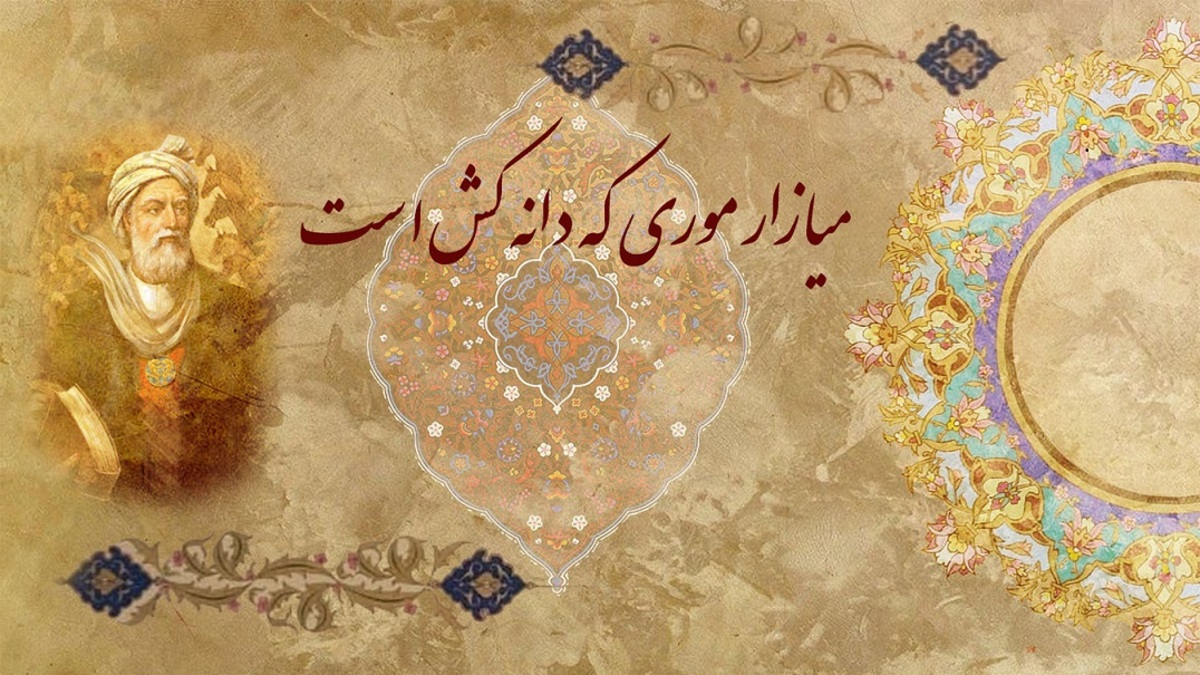 میازار موری که دانه کش است